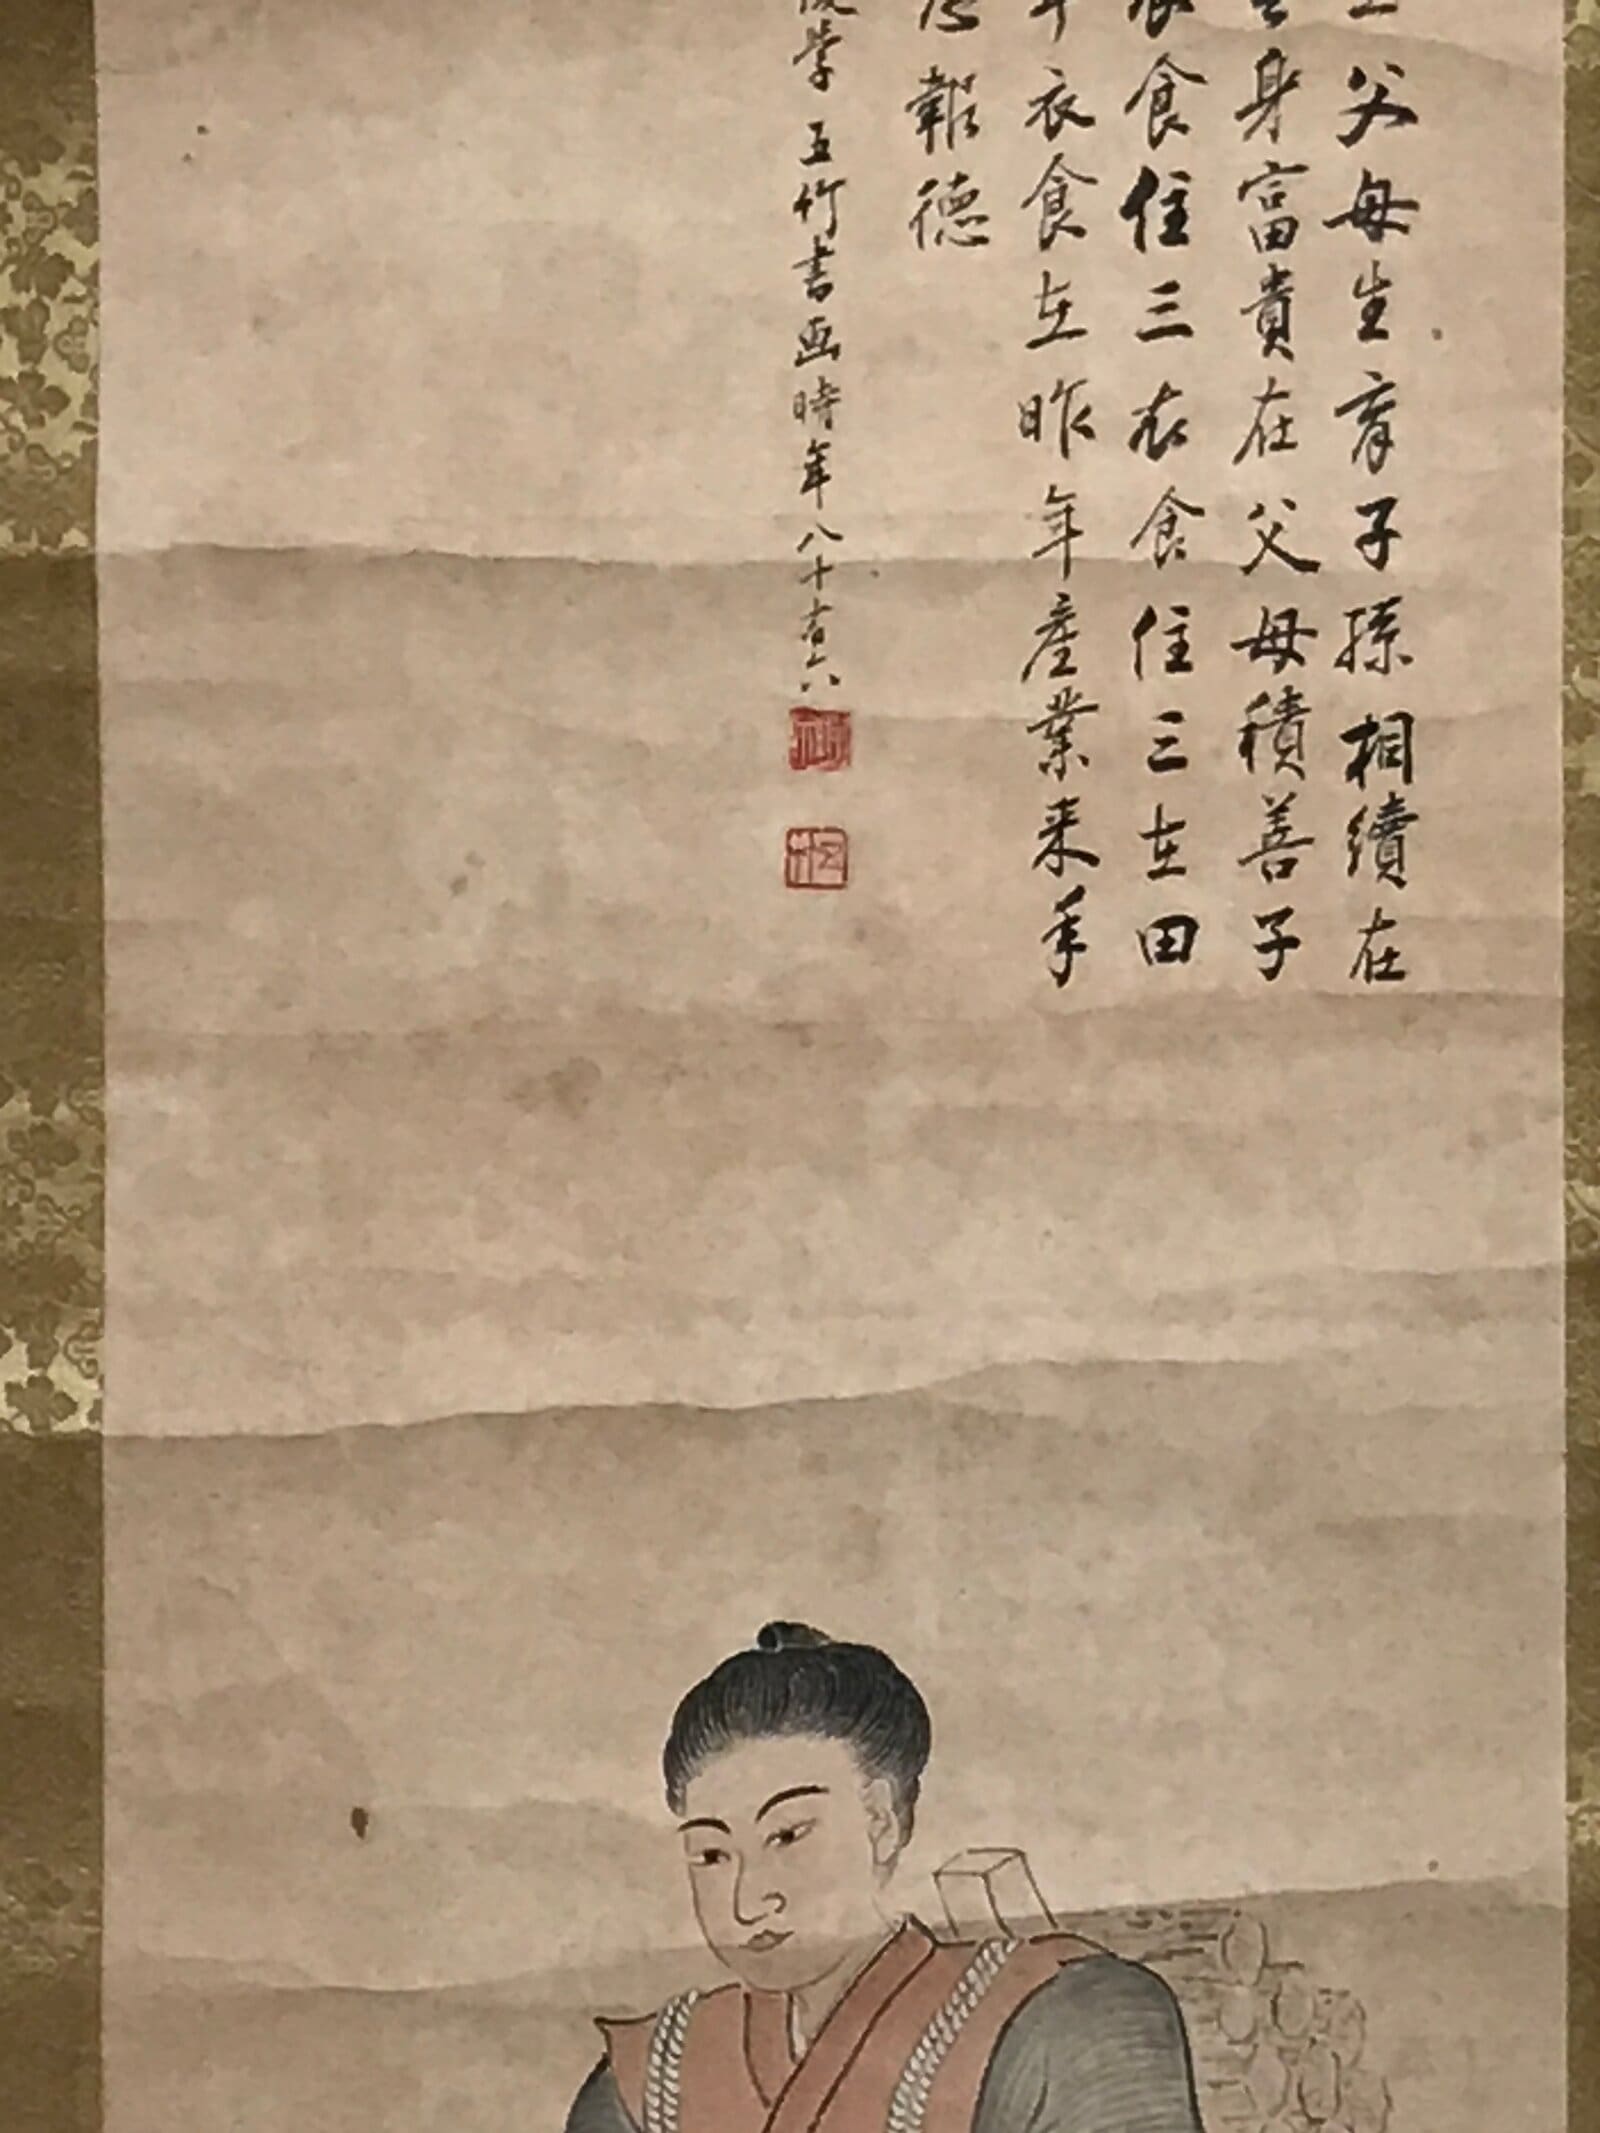 父母生育子孫相續在
身富貴在父母積善子
食住三衣食住三在田
衣食在昨年産業来年
報徳
学 五竹書画時年八十有六